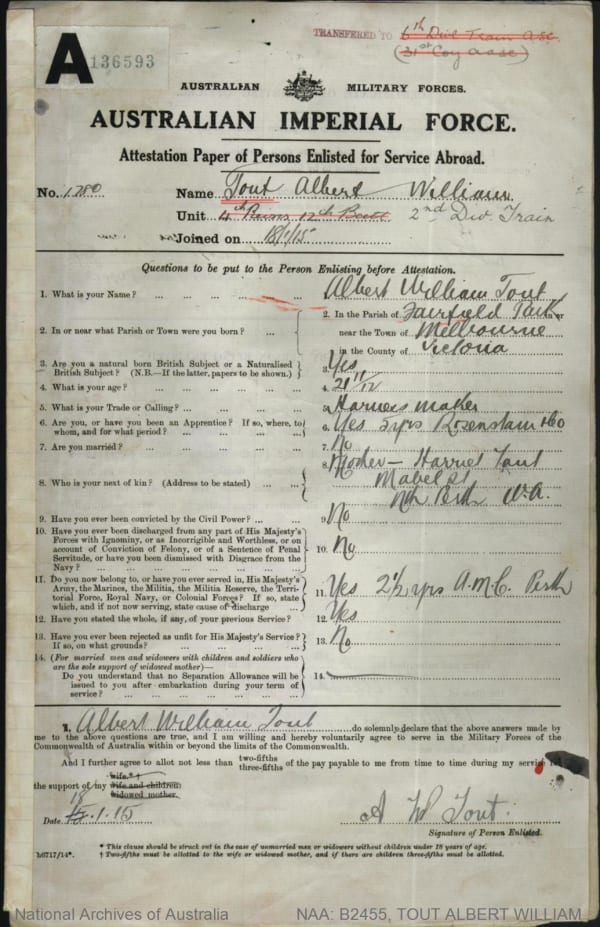 TRANSFERRED TO 6th Div Train ASC
(31st Coy AASC)
A 136593
AUSTRALIAN MILITARY FORCES.
AUSTRALIAN IMPERIAL FORCE.
Attestation Paper of Persons Enlisted for Service Abroad.
No. 1780 Name Tout Albert William
Unit 4th Reins 12th Batt 2nd Div. Train
Joined on 18/1/15
Questions to be put to the Person Enlisting before Attestation.
1. What is your Name? ... Albert William Tout
2. In or near what Parish or Town were you born? ... 2. In the Parish of Fairfield Park in or
near the Town of Melbourne
in the County of Victoria
3. Are you a natural born British Subject or a Naturalised
British Subject? (N.B.—If the latter, papers to be shown.) 3. Yes
4. What is your age? ... 4. 21 11/12
5. What is your Trade or Calling? ... 5. Harness maker
6. Are you, or have you been an Apprentice? If so, where, to
whom, and for what period? ... 6. Yes 5 yrs Rosenstam & Co
7. Are you married? ... 7. No
8. Who is your next of kin? (Address to be stated) ... 8. Mother — Harriet Tout
Mabel St
Nth Perth W.A.
9. Have you ever been convicted by the Civil Power? ... 9. No
10. Have you ever been discharged from any part of His Majesty's
Forces with Ignominy, or as Incorrigible and Worthless, or on
account of Conviction of Felony, or of a Sentence of Penal
Servitude, or have you been Dismissed with Disgrace from the
Navy? ... 10. No
11. Do you now belong to, or have you ever served in, His Majesty's
Army, the Marines, the Militia, the Militia Reserve, the Terri-
torial Force, Royal Navy, or Colonial Forces? If so, state
which, and if not now serving, state cause of discharge 11. Yes 2½ yrs A.M.C. Perth
12. Have you stated the whole, if any, of your previous Service? 12. Yes
13. Have you ever been rejected as unfit for His Majesty's Service?
If so, on what grounds? 13. No
14. (For married men and widowers with children and soldiers who
are the sole support of widowed mother)—
Do you understand that no Separation Allowance will be
issued to you after embarkation during your term of
service? ... 14.
I, Albert William Tout do solemnly declare that the above answers made by
me to the above questions are true, and I am willing and hereby voluntarily agree to serve in the Military Forces of the
Commonwealth of Australia within or beyond the limits of the Commonwealth.
And I further agree to allot not less than two-fifths
three-fifths of the pay payable to me from time to time during my service for
the support of my wife.*†
wife and children
widowed mother.
Date 18 15.1.15 A W Tout
Signature of Person Enlisted.
* This clause should be struck out in the case of unmarried men or widowers without children under 18 years of age.
b6717/14*. † Two-fifths must be allotted to the wife or widowed mother, and if there are children three-fifths must be allotted.
National Archives of Australia NAA: B2455, TOUT ALBERT WILLIAM